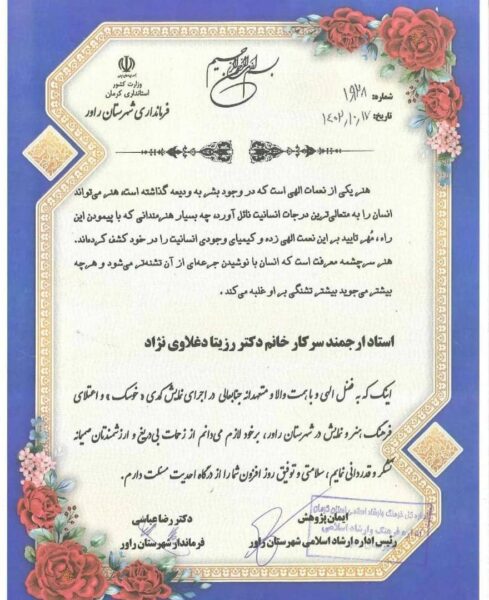 بسم الله الرحمن الرحیم
وزارت کشور
استانداری کرمان
فرمانداری شهرستان راور
شماره: ۱۹۲۸
تاریخ: ۱۴۰۲/۱۰/۱۷
هنر یکی از نعمات الهی است که در وجود بشر به ودیعه گذاشته است، هنر می‌تواند
انسان را به متعالی‌ترین درجات انسانیت نائل آورد، چه بسیار هنرمندانی که با پیمودن این
راه، مُهر تایید بر این نعمت الهی زده و کیمیای وجودی انسانیت را در خود کشف کرده‌اند.
هنر سرچشمه معرفت است که انسان با نوشیدن جرعه‌ای از آن تشنه‌تر می‌شود و هرچه
بیشتر می‌جوید بیشتر تشنگی بر او غلبه می‌کند.
استاد ارجمند سرکار خانم دکتر رزیتا دغلاوی نژاد
اینک که به فضل الهی و با همت والا و متعهدانه جنابعالی در اجرای نمایش کمدی « خوسک » و اعتلای
فرهنگ، هنر و نمایش در شهرستان راور، بر خود لازم می‌دانم از زحمات بی‌دریغ و ارزشمندتان صمیمانه
تشکر و قدردانی نمایم، سلامتی و توفیق روز افزون شما را از درگاه احدیت مسئلت دارم.
ایمان پژوهش
رئیس اداره ارشاد اسلامی شهرستان راور
دکتر رضا عباسی
فرماندار شهرستان راور
اداره کل فرهنگ و ارشاد اسلامی استان کرمان
اداره فرهنگ و ارشاد اسلامی